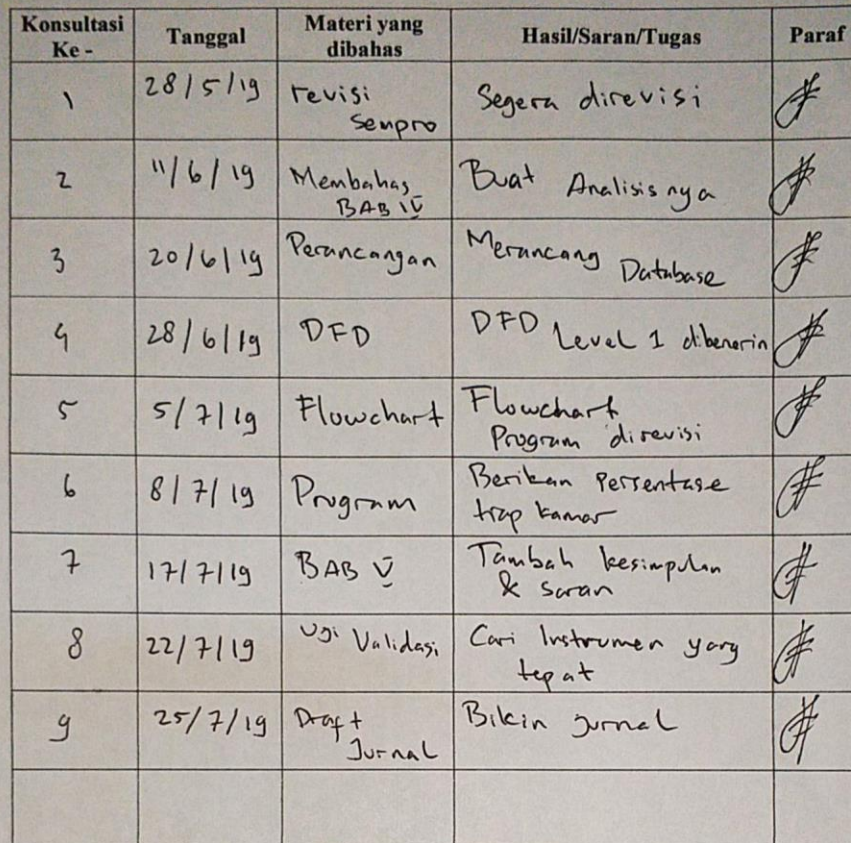 Konsultasi Ke - Tanggal Materi yang dibahas Hasil/Saran/Tugas Paraf
1 28/5/19 revisi Sempro Segera direvisi
2 11/6/19 Membahas BAB IV Buat Analisis nya
3 20/6/19 Perancangan Merancang Database
4 28/6/19 DFD DFD Level 1 dibenerin
5 5/7/19 Flowchart Flowchart Program direvisi
6 8/7/19 Program Berikan Persentase trap kamar
7 17/7/19 BAB V Tambah kesimpulan & saran
8 22/7/19 Uji Validasi Cari Instrumen yang tepat
9 25/7/19 Draft Jurnal Bikin jurnal